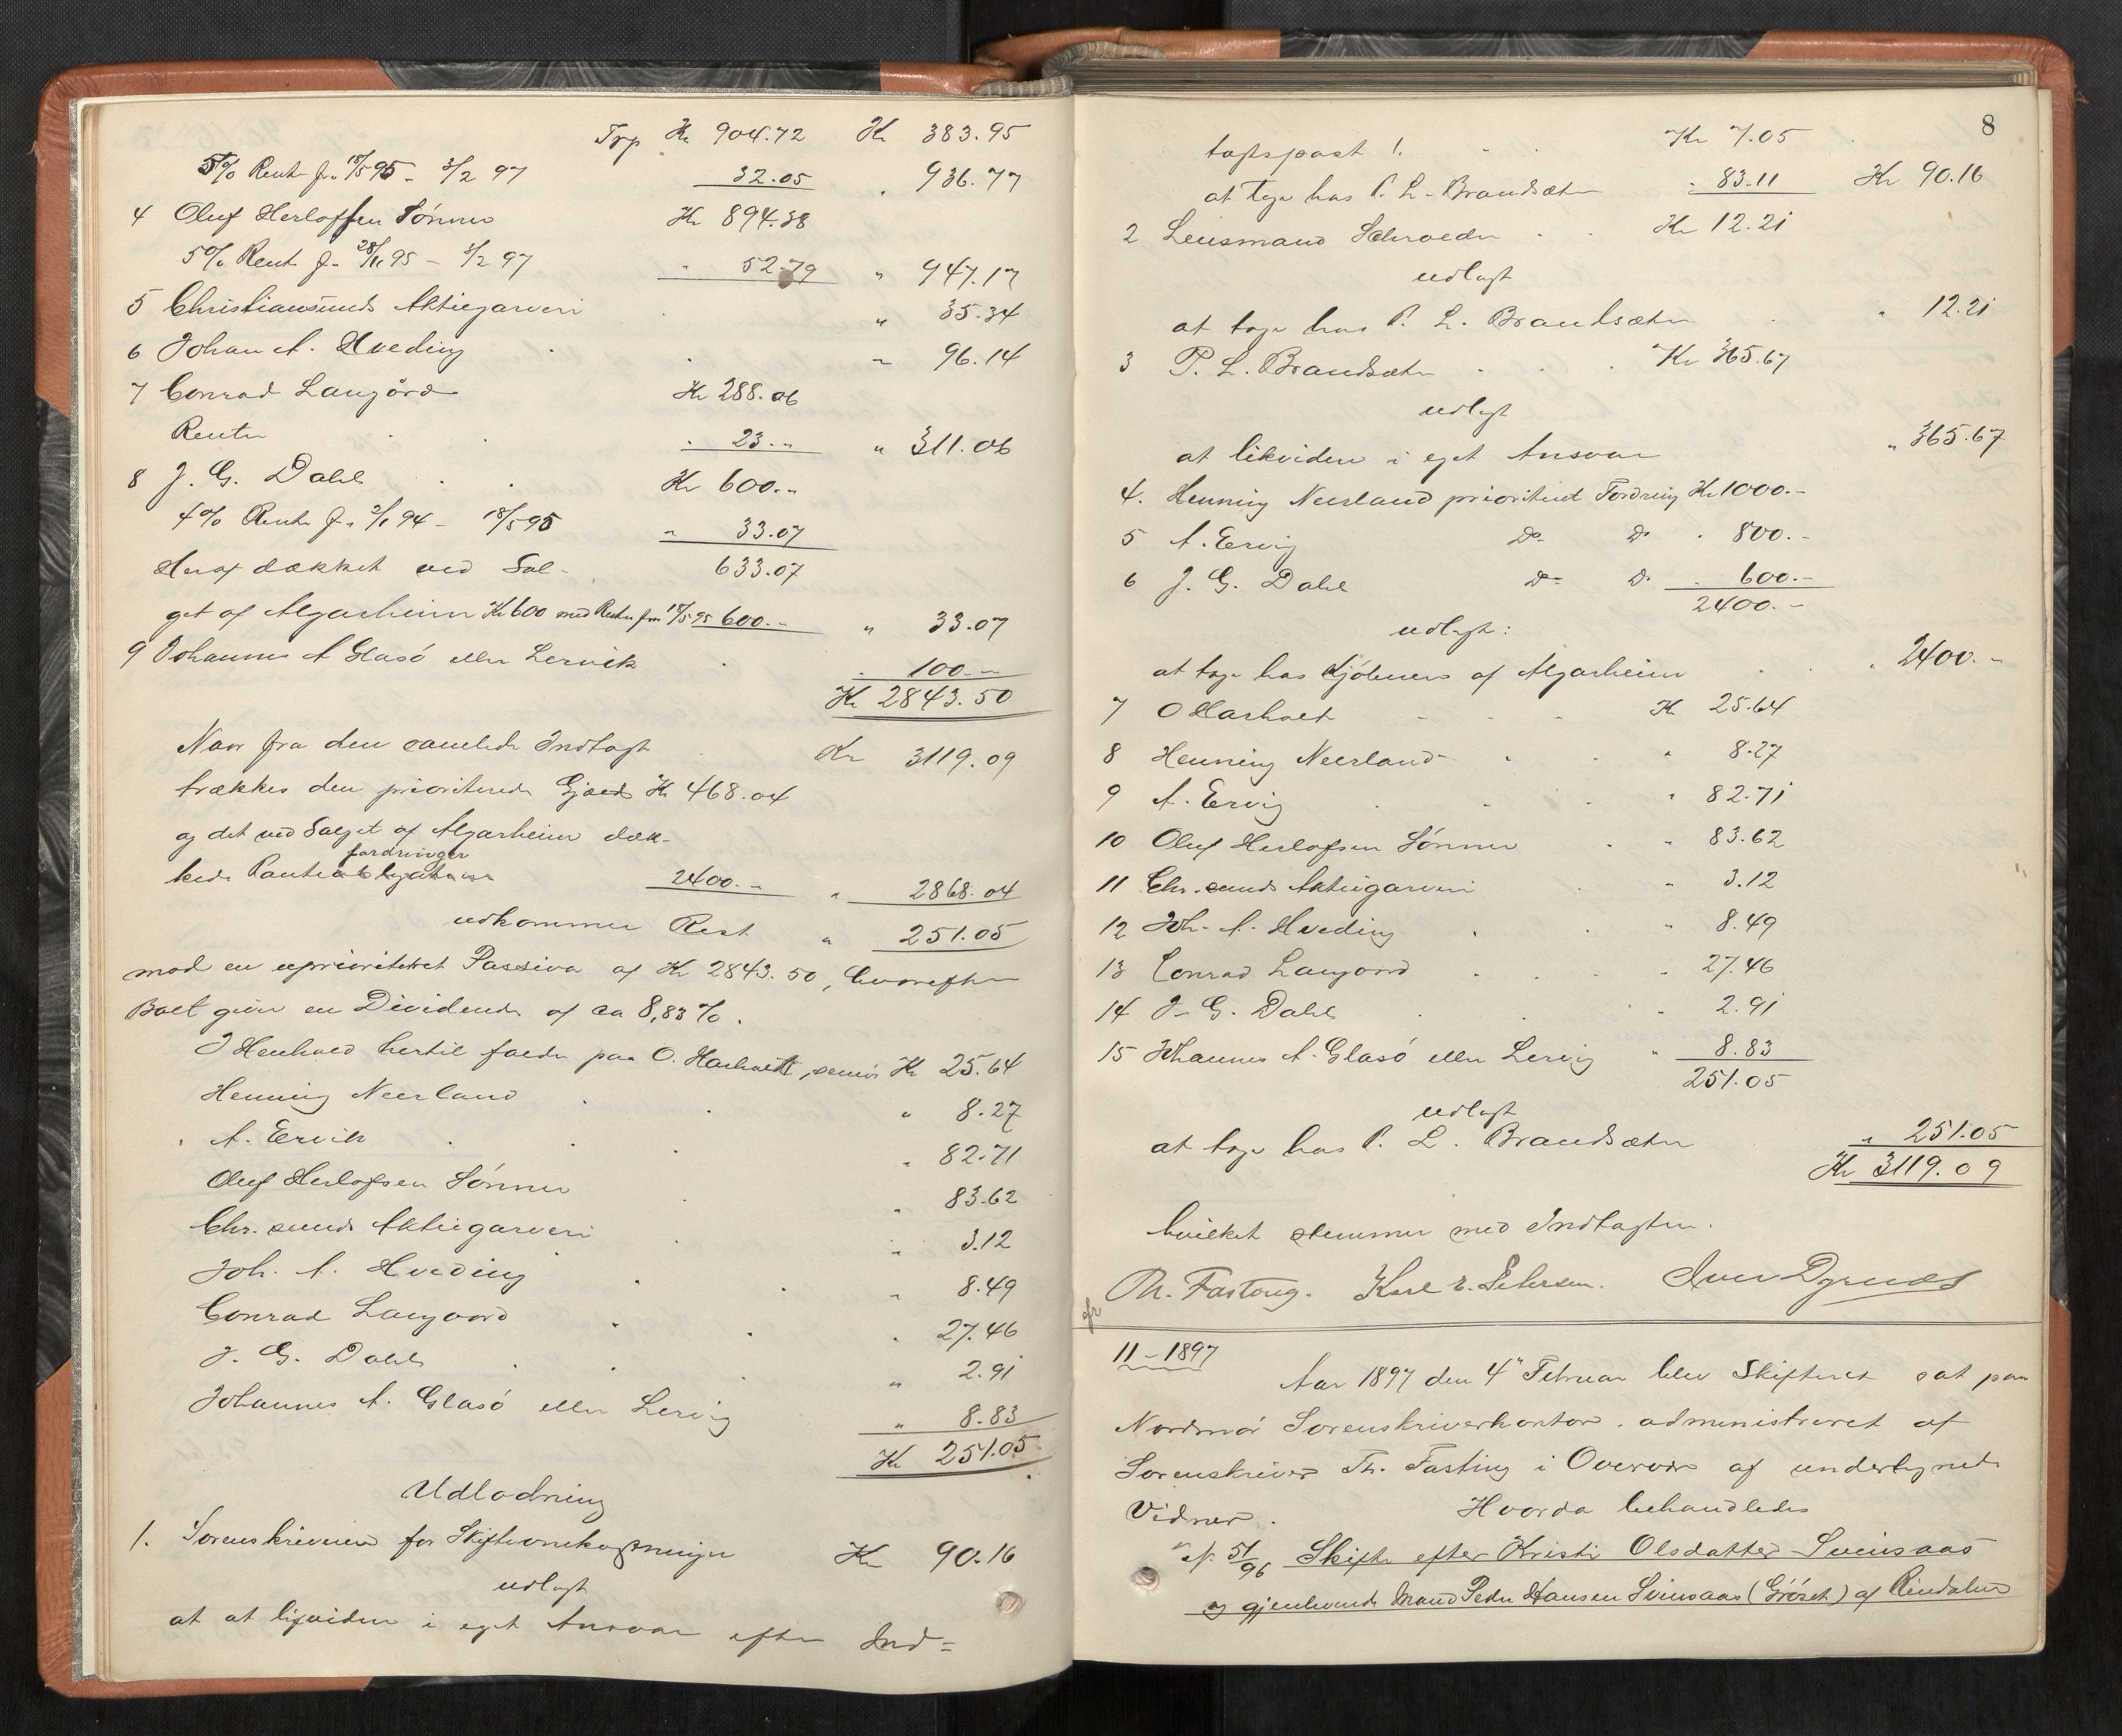 Trp Kr 904.72 Kr 383.95
5% Rente fr. 18/5 95 - 3/2 97 32.05 " 936.77
4 Oluf Herloffsen Sönner Kr 894.38
5% Rente fr. 28/11 95 - 3/2 97 " 52.79 " 947.17
5 Christiansunds Aktiegarveri " 35.34
6 Johan A. Hveding " 96.14
7 Conrad Langörd Kr 288.06
Renter " 23.- " 311.06
8 J. G. Dahl Kr 600.-
4% Rente fr. 2/1 94 - 18/5 95 " 33.07
Heraf dækket ved Sal- 633.07
get af Algarheim Kr 600 med Renter fra 18/5 95 600.- " 33.07
9 Johannes A Glasö eller Lervik " 100.-
Kr 2843.50
Naar fra den samlede Indtægt Kr 3119.09
trækkes den prioriterede Gjæld Kr 468.04
og det ved Salget af Algarheim dæk-
fordringer
kede Panteobligationer 2400.- " 2868.04
udkommer Rest " 251.05
mod en uprioriteret Passiva af Kr 2843.50, hvorefter
Boet giver en Dividende af ca 8,83%.
I Henhold hertil falder paa O. Hasholdt, senior Kr 25.64
Henning Neerland " 8.27
A. Ervik " 82.71
Oluf Herlofsen Sönner " 83.62
Chr.sunds Aktiegarveri " 3.12
Joh. A. Hveding " 8.49
Conrad Langoord " 27.46
J. G. Dahl " 2.91
Johannes A. Glasö eller Lervig " 8.83
Kr 251.05
Udlodning
1. Sorenskriveren for Skifteomkostninger Kr 90.16
udlagt
at at liqvidere i eget Ansvar efter Ind=
8
tægtspost 1. Kr 7.05
at tage hos P. L. Brandsæter " 83.11 Kr 90.16
2 Lensmand Schroeder Kr 12.21
udlagt
at tage hos P. L. Brandsæter " 12.21
3 P. L. Brandsæter Kr 365.67
udlagt
at likvidere i eget Ansvar " 365.67
4. Henning Neerland prioriteret Fordring Kr 1000.-
5 A. Ervig Do Do " 800.-
6 J. G. Dahl Do Do " 600.-
2400.-
udlagt:
at tage hos Kjöberen af Algarheim " 2400.-
7 O Hasholdt Kr 25.64
8 Henning Neerland " 8.27
9 A. Ervig " 82.71
10 Oluf Herlofsen Sönner " 83.62
11 Chr.sunds Aktiegarveri " 3.12
12 Joh. A. Hveding " 8.49
13 Conrad Langoord " 27.46
14 J. G. Dahl " 2.91
15 Johannes A. Glasö eller Lervig " 8.83
251.05
udlagt
at tage hos P. L. Brandsæter " 251.05
Kr 3119.09
hvilket stemmer med Indtægten.
Th. Fasting. Karl E. Petersen. Iver Dyrnes
11-1897
Aar 1897 den 4" Februar blev Skifteret sat paa
Nordmör Sorenskriverkontor, administreret af
Sorenskriver Th. Fasting i Overvær af undertegnede
Vidner. Hvorda behandledes
No. 51/96 Skifte efter Kristi Olsdatter Svinsaas
og gjenlevende Mand Peder Hansen Svinsaas (Gröset) af Rindalen